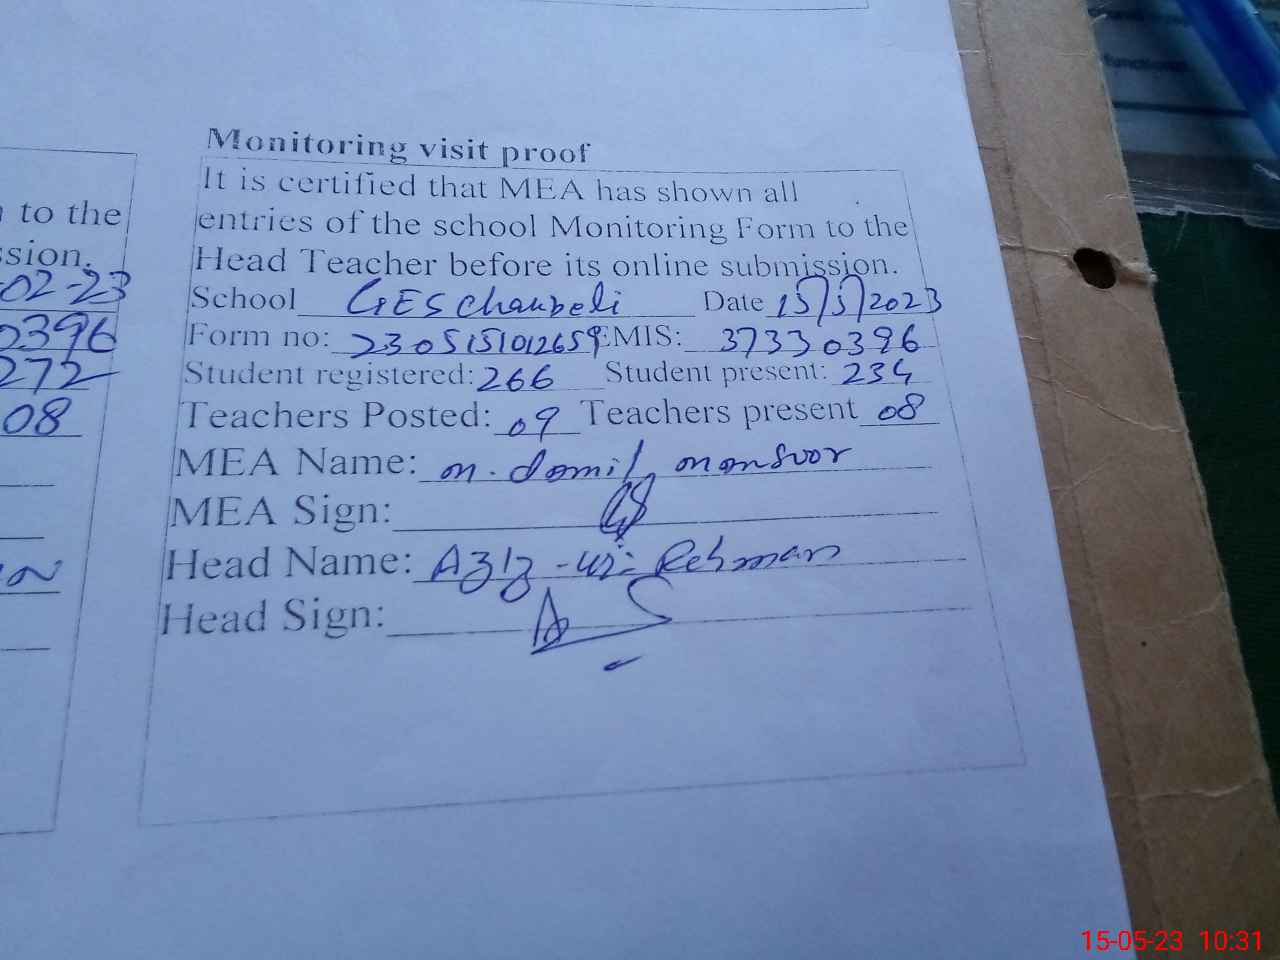 to the
ssion.
-02-23
0396
272
08
Monitoring visit proof
It is certified that MEA has shown all
entries of the school Monitoring Form to the
Head Teacher before its online submission.
School GES Chaubeli Date 15/5/2023
Form no: 2305151012659 EMIS: 37330396
Student registered: 266 Student present: 234
Teachers Posted: 09 Teachers present 08
MEA Name: M. Jamil Mansoor
MEA Sign:
Head Name: Aziz-ur-Rehman
Head Sign:
function
15-05-23 10:31